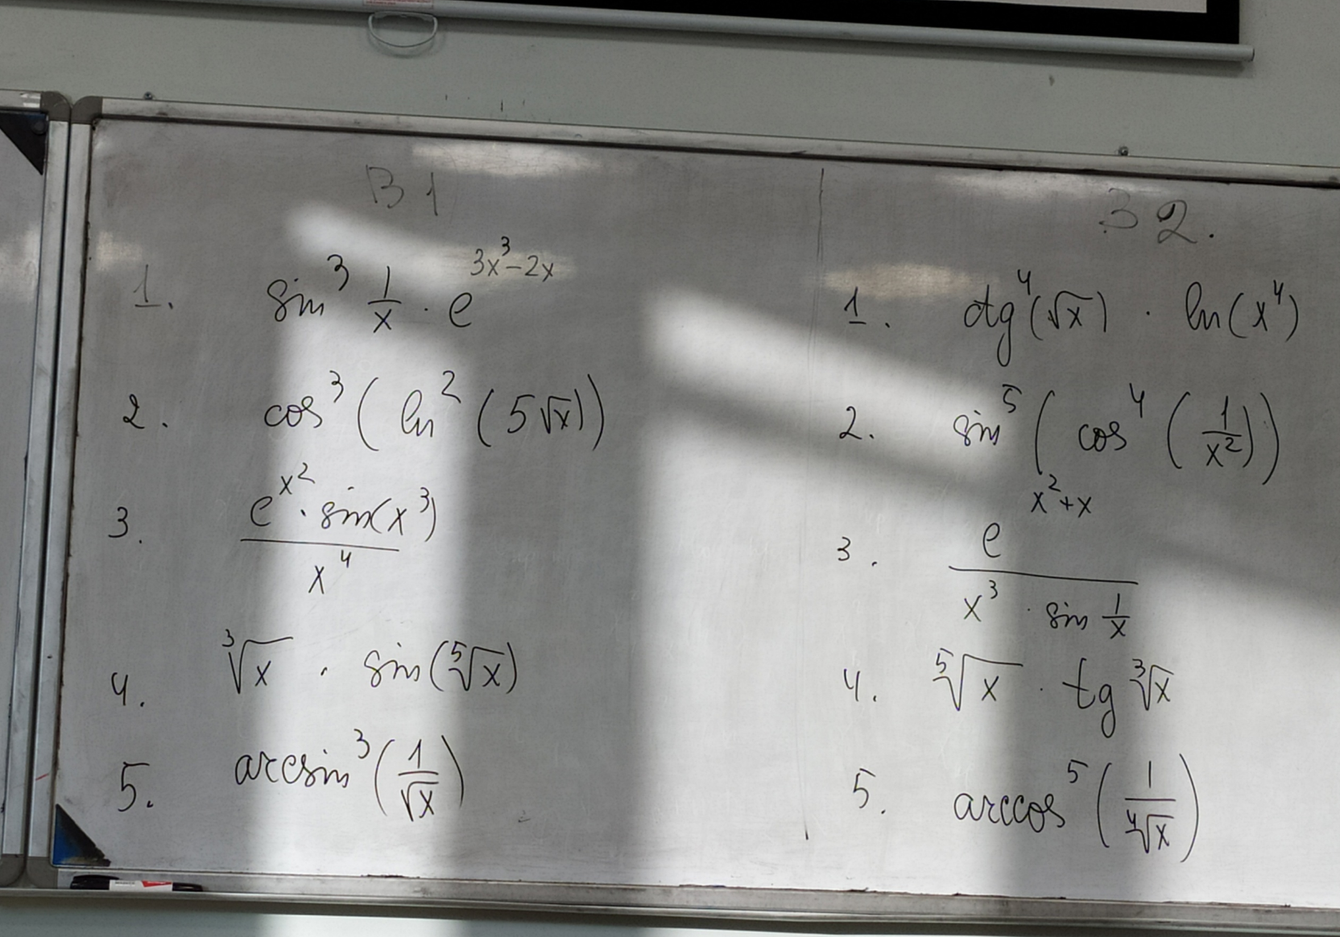 B1
1. sin³ 1/x · e^(3x³-2x)
2. cos³ (ln² (5√x))
3. e^(x²) · sin(x³) / x⁴
4. ∛x · sin(⁵√x)
5. arcsin³ (1/√x)
B2.
1. ctg⁴(√x) · ln(x⁴)
2. sin⁵ (cos⁴ (1/x²))
3. e^(x²+x) / x³ · sin 1/x
4. ⁵√x · tg ∛x
5. arccos⁵ (1/⁴√x)